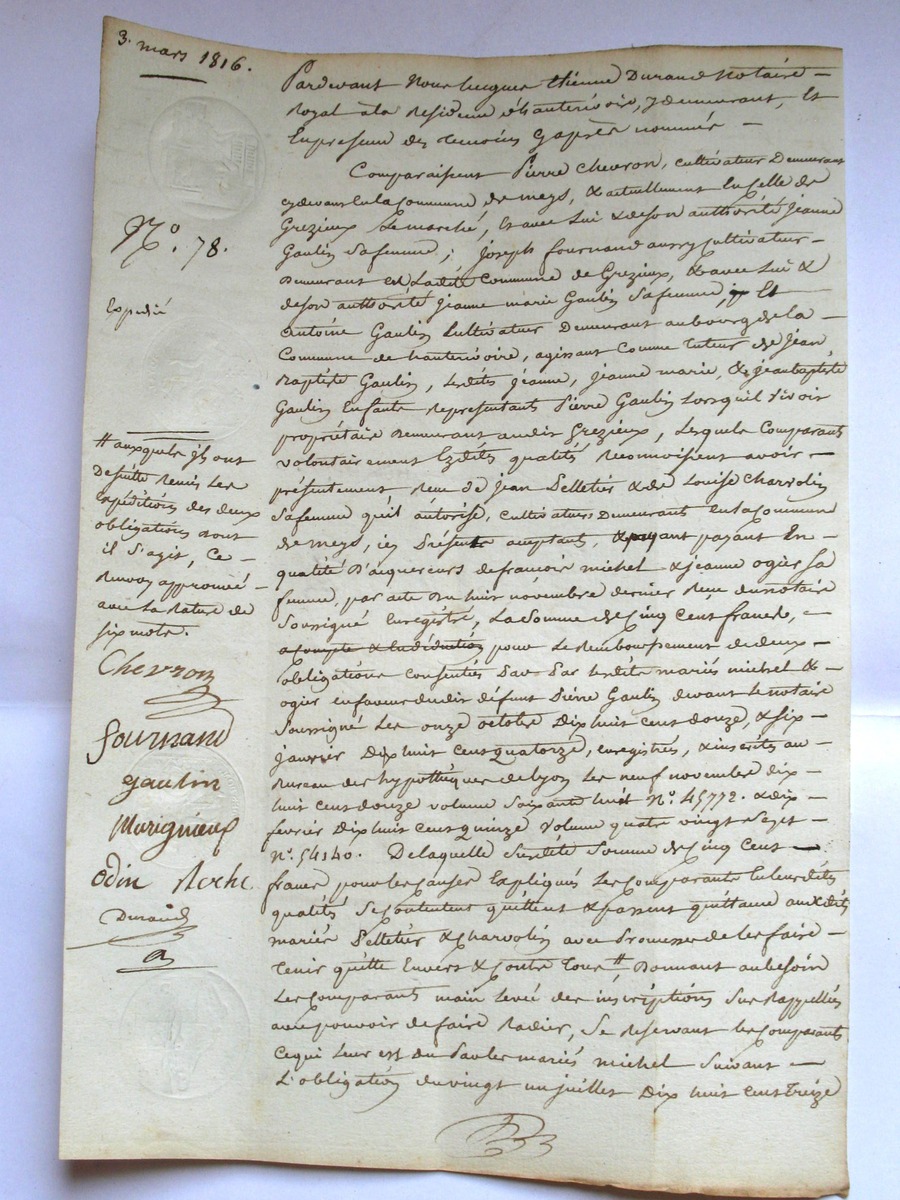 3. mars 1816.
N.º 78.
Expedié
# auxquels ils ont
De suitte Remis Les
Expéditions des deux
obligations dont
il s'agit, Ce
Renvoy approuvé
avec la Rature de
six mots.
Chevron
fournand
gaulin
Marignieux
Odin Roche
Durand
Pardevant Nous hugues Etienne Durand Notaire
Royal à la Residence d'hauterivoire, y demeurant, Et
En presence des temoins cy après nommés
Comparaissent Pierre Chevron, cultivateur Demeurant
cy devant En la Commune de meys, & actuellement En Celle de
Grezieux Le marché, & avec Lui & de son authorité Jeanne
Gaulin sa femme; Joseph fournand aussy Cultivateur
Demeurant en La dite Commune de Grezieux, & avec Lui &
de son authorité Jeanne marie Gaulin sa femme; Et
Antoine Gaulin Cultivateur Demeurant au bourg de la
Commune de hauterivoire, agissant Comme tuteur de Jean
Baptiste Gaulin, Lesdits Jeanne, Jeanne marie, & Jean baptiste
Gaulin Enfants Représentants Pierre Gaulin Lorsqu'il vivoit
propriétaire Demeurant audit Grezieux, Lesquels Comparants
volontairement Ezdites qualités Reconnoissent avoir
présentement Reçu de Jean Pelletier & de Louise Charvolin
sa femme qu'il autorise, cultivateurs Demeurants En la Commune
de meys, icy Présents acceptants, & payant En
qualité D'acquereurs de françois michel & jeanne ogier sa
femme par acte du huit novembre dernier Reçu du notaire
Soussigné Enregistré, La somme de Cinq Cent francs,
a compte & En déduction pour Le Remboursement de deux
obligations Consenties Par Lesdits mariés michel &
ogier en faveur dudit défunt Pierre Gaulin devant Le notaire
Soussigné Les onze octobre Dix huit Cent douze, & six
janvier Dix huit Cent quatorze, enregistrés, & inscrites au
Bureau des hypothèques de Lyon Les neuf novembre dix
huit cent douze volume soixante huit N.º 45772. & dix
fevrier Dix huit Cent quinze volume quatre vingt sept
N.º 54140. De laquelle susdite somme de Cinq Cent
francs pour Les Causes Expliqués Les Comparants En leurs dites
qualités se Contentent quittent & passent quittance auxdits
mariés Pelletier & Charvolin avec Promesse de les faire
tenir quitte Envers & Contre tous # Donnant au besoin
Les Comparants main Levée des inscriptions Sus Rappellées
avec pouvoir de faire Radier, Se Reservant Les Comparants
Ce qui Leur est du Par les mariés michel suivant
L'obligation du vingt un juillet Dix huit Cent treize